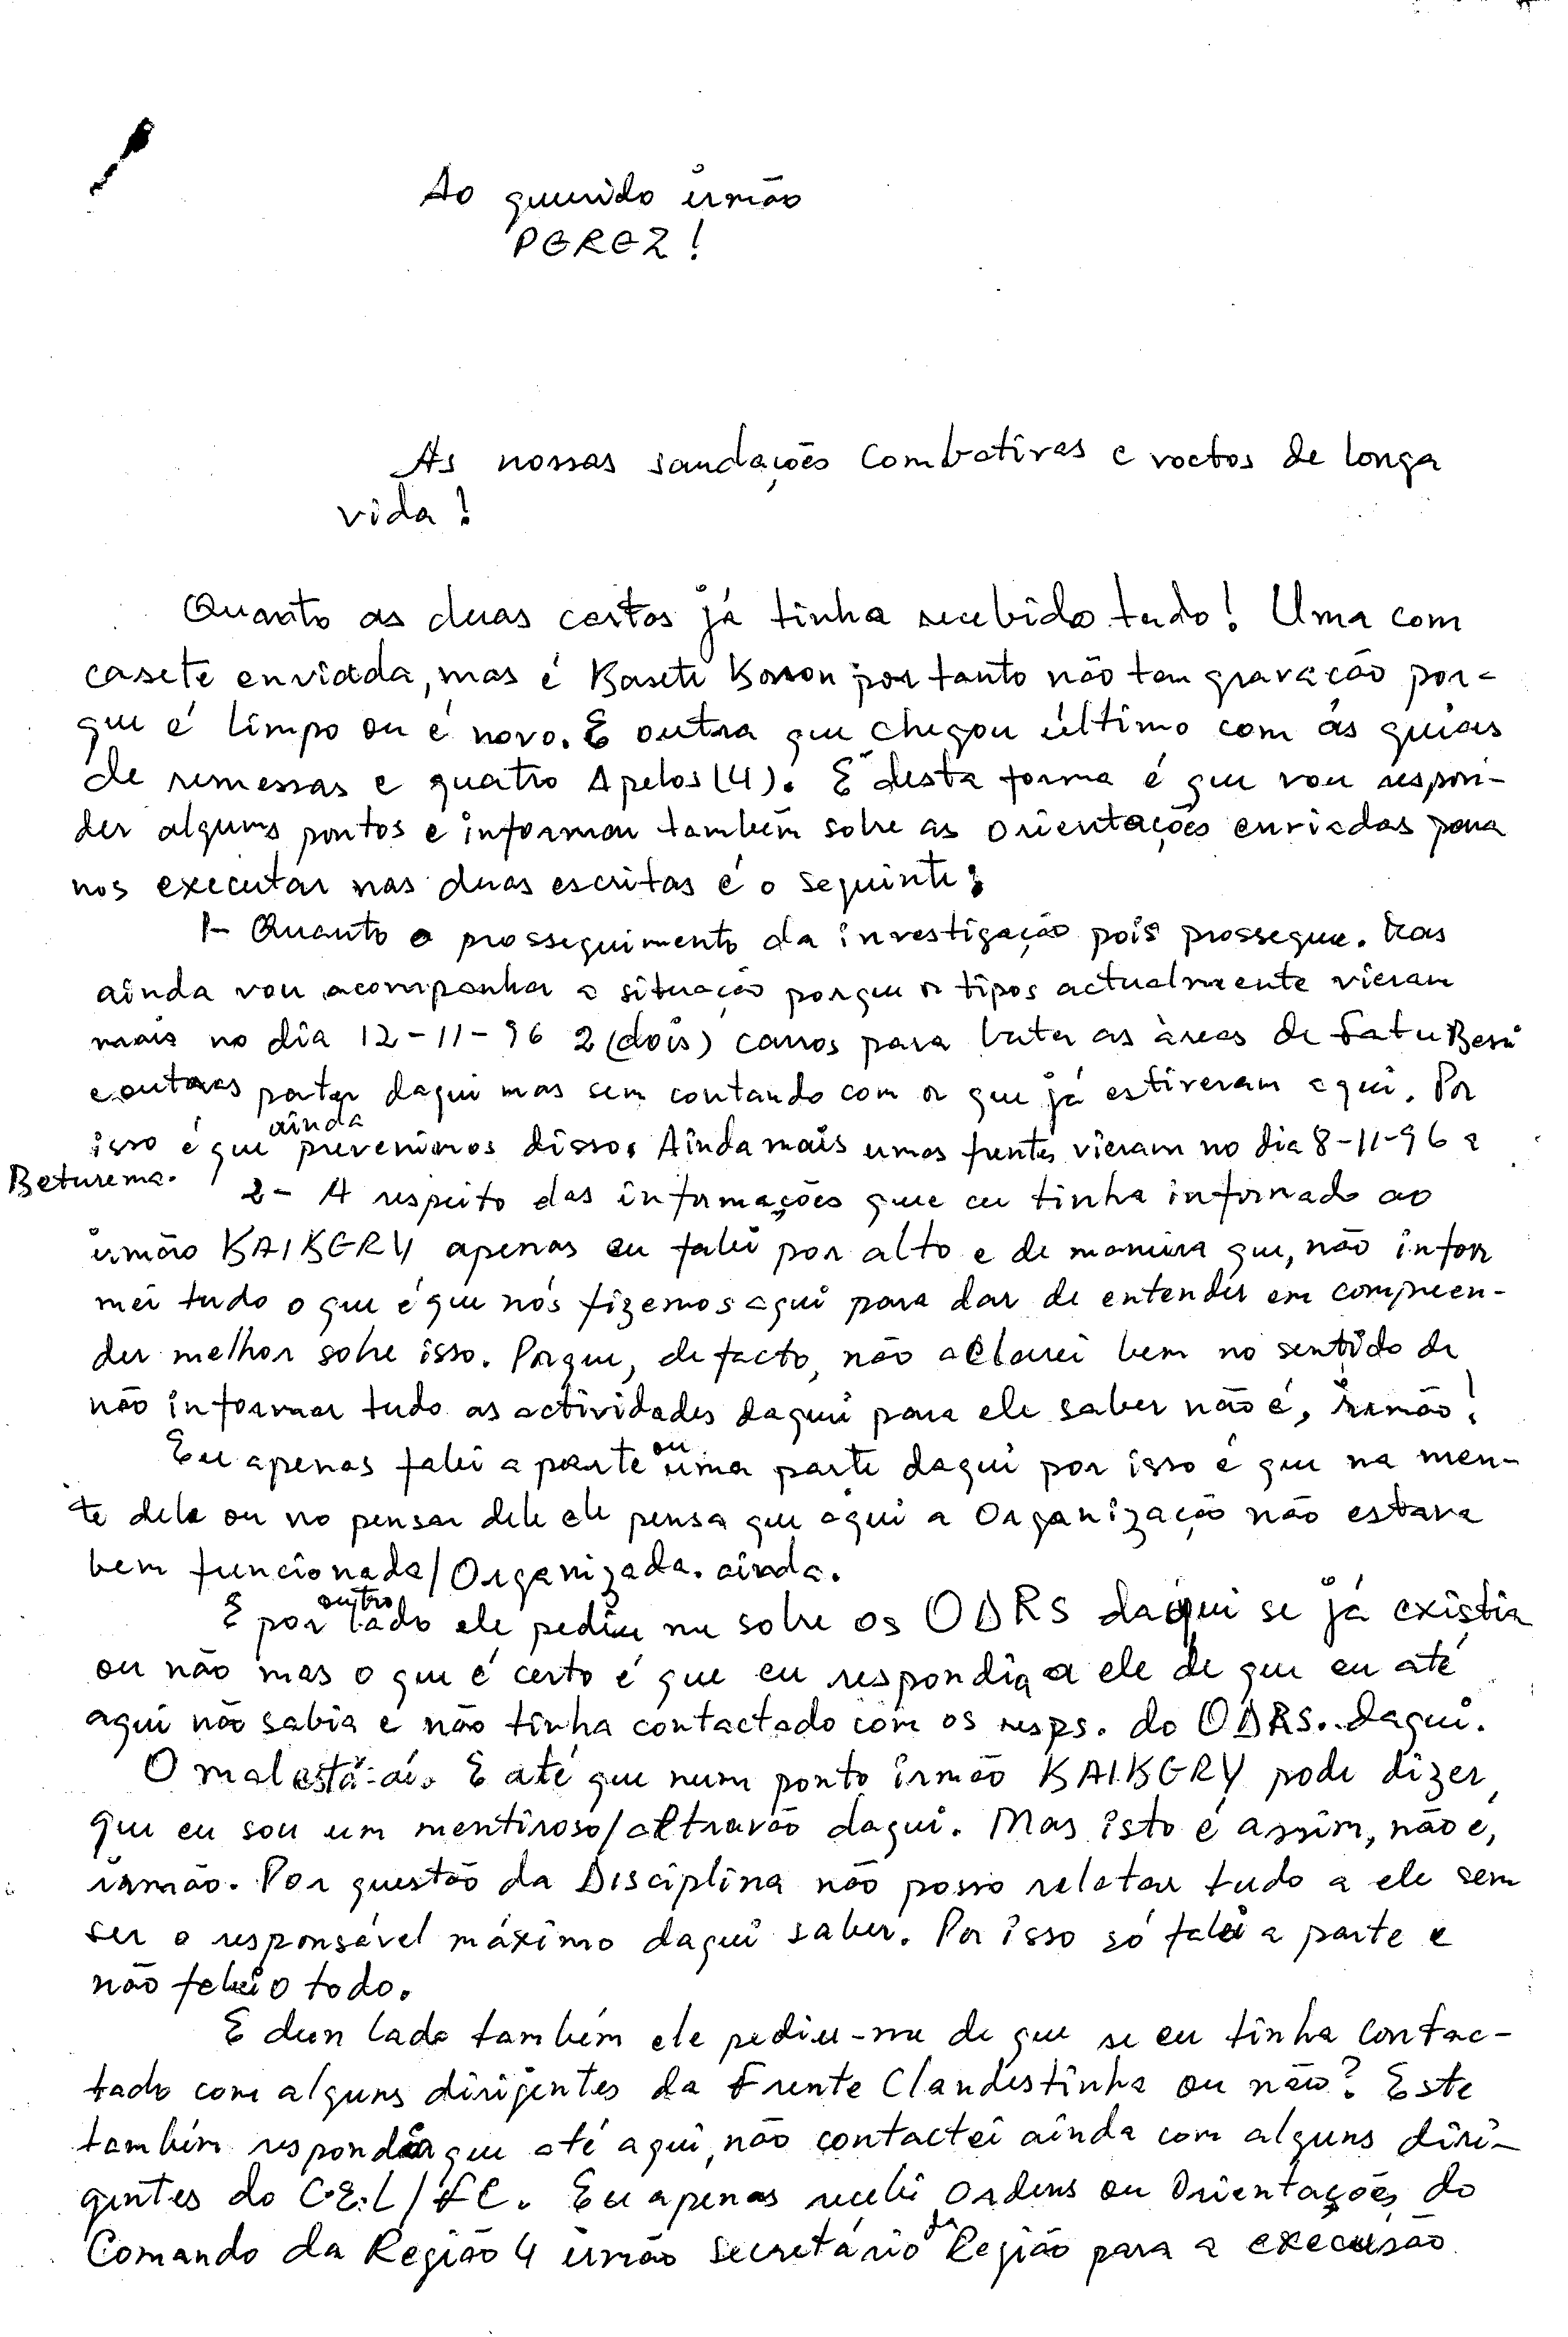 Ao querido irmão
PEREZ!
As nossas saudações combativas e voctos de longa
vida!
Quanto as duas cartas já tinha recebido tudo! Uma com
casete enviada, mas é Kaseti Kosson portanto não tem gravação por-
que é limpo ou é novo. E outra que chegou último com as guias
de remessas e quatro Apelos (4). E desta forma é que vou respon-
der alguns pontos e informar também sobre as orientações enviadas para
nos executar nas duas escritas é o seguinte:
1- Quanto o prosseguimento da investigação pois prossegue. Mas
ainda vou acompanhar a situação porque os tipos actualmente vieram
mais no dia 12-11-96 2 (dois) carros para bater as àreas de Fatu Besi
e outras partes daqui mas sem contando com os que já estiveram aqui. Por
isso é que ainda prevenimos disso. Ainda mais umas frentes vieram no dia 8-11-96 a
Beturema.
2- A respeito das informações que eu tinha informado ao
irmão KAIKERY apenas eu falei por alto e de maneira que, não infor
mei tudo o que é que nós fizemos aqui para dar de entender em compreen-
der melhor sobre isso. Porque, de facto, não aclarei bem no sentido de
não informar tudo as actividades daqui para ele saber não é, irmão!
Eu apenas falei a parte ou uma parte daqui por isso é que na men-
te dele ou no pensar dele ele pensa que aqui a Organização não estava
bem funcionada/Organizada. ainda.
E por outro lado ele pediu me sobre os ODRS daqui se já existia
ou não mas o que é certo é que eu respondi a ele de que eu até
aqui não sabia e não tinha contactado com os resps. do ODRS.. daqui.
O mal está-aí. E até que num ponto irmão KAIKERY pode dizer,
que eu sou um mentiroso/altravão daqui. Mas isto é assim, não é,
irmão. Por questão da Disciplina não posso relatar tudo a ele sem
ser o responsável máximo daqui saber. Por isso só falei a parte e
não falei o todo.
E dum lado também ele pediu-me de que se eu tinha contac-
tado com alguns dirigentes da Frente Clandestinha ou não? Este
também respondi que até aqui, não contactei ainda com alguns diri-
gentes do C.E.L/FC. Eu apenas recebi Ordens ou Orientações do
Comando da Região 4 irmão Secretário da Região para a execusão